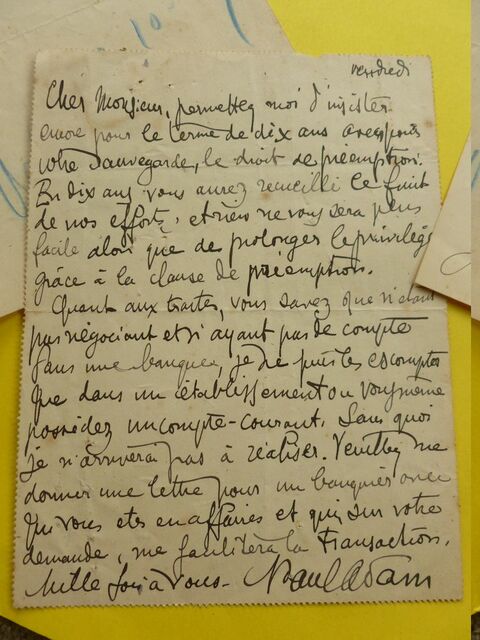 vendredi
Cher Monsieur, permettez moi d'insister
encore pour le terme de dix ans avec, pour
votre sauvegarde, le droit de préemption.
En dix ans vous aurez recueilli le fruit
de nos efforts, et rien ne vous sera plus
facile alors que de prolonger le privilège
grâce à la clause de préemption.
Quant aux traites, vous savez que n'étant
pas négociant et n'ayant pas de compte
dans une banque, je ne puis les escompter
que dans un établissement où vous même
possédez un compte-courant. Sans quoi
je n'arriverai pas à réaliser. Veuillez me
donner une lettre pour un banquier avec
qui vous êtes en affaires et qui, sur votre
demande, me facilitera la transaction.
Mille fois à vous - Paul Adam